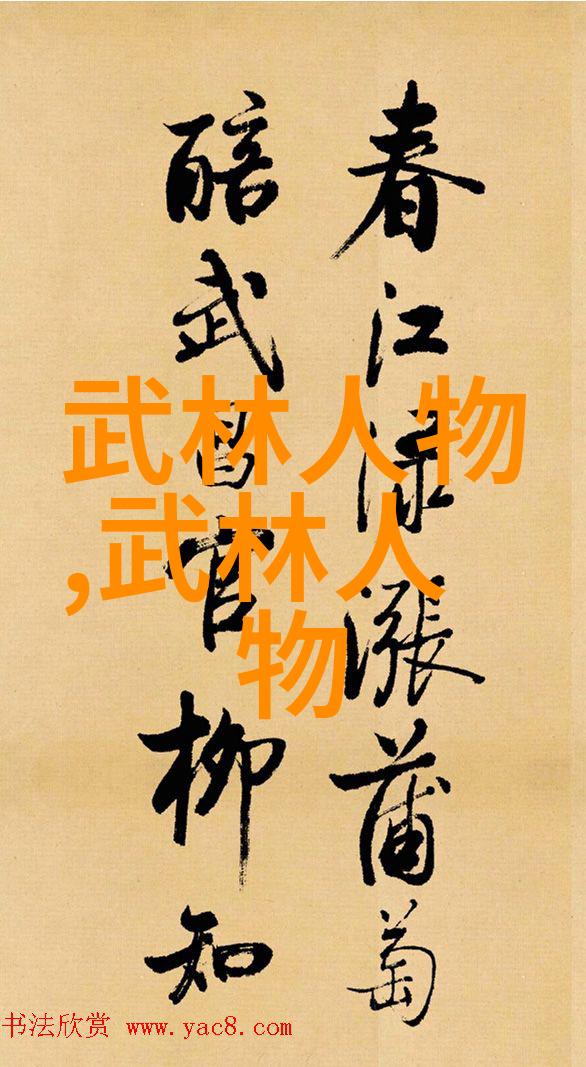 春江渌漲蒲萄
醅武昌官柳知
武林人物
,武林人
物
书法欣赏 www.yac8.com